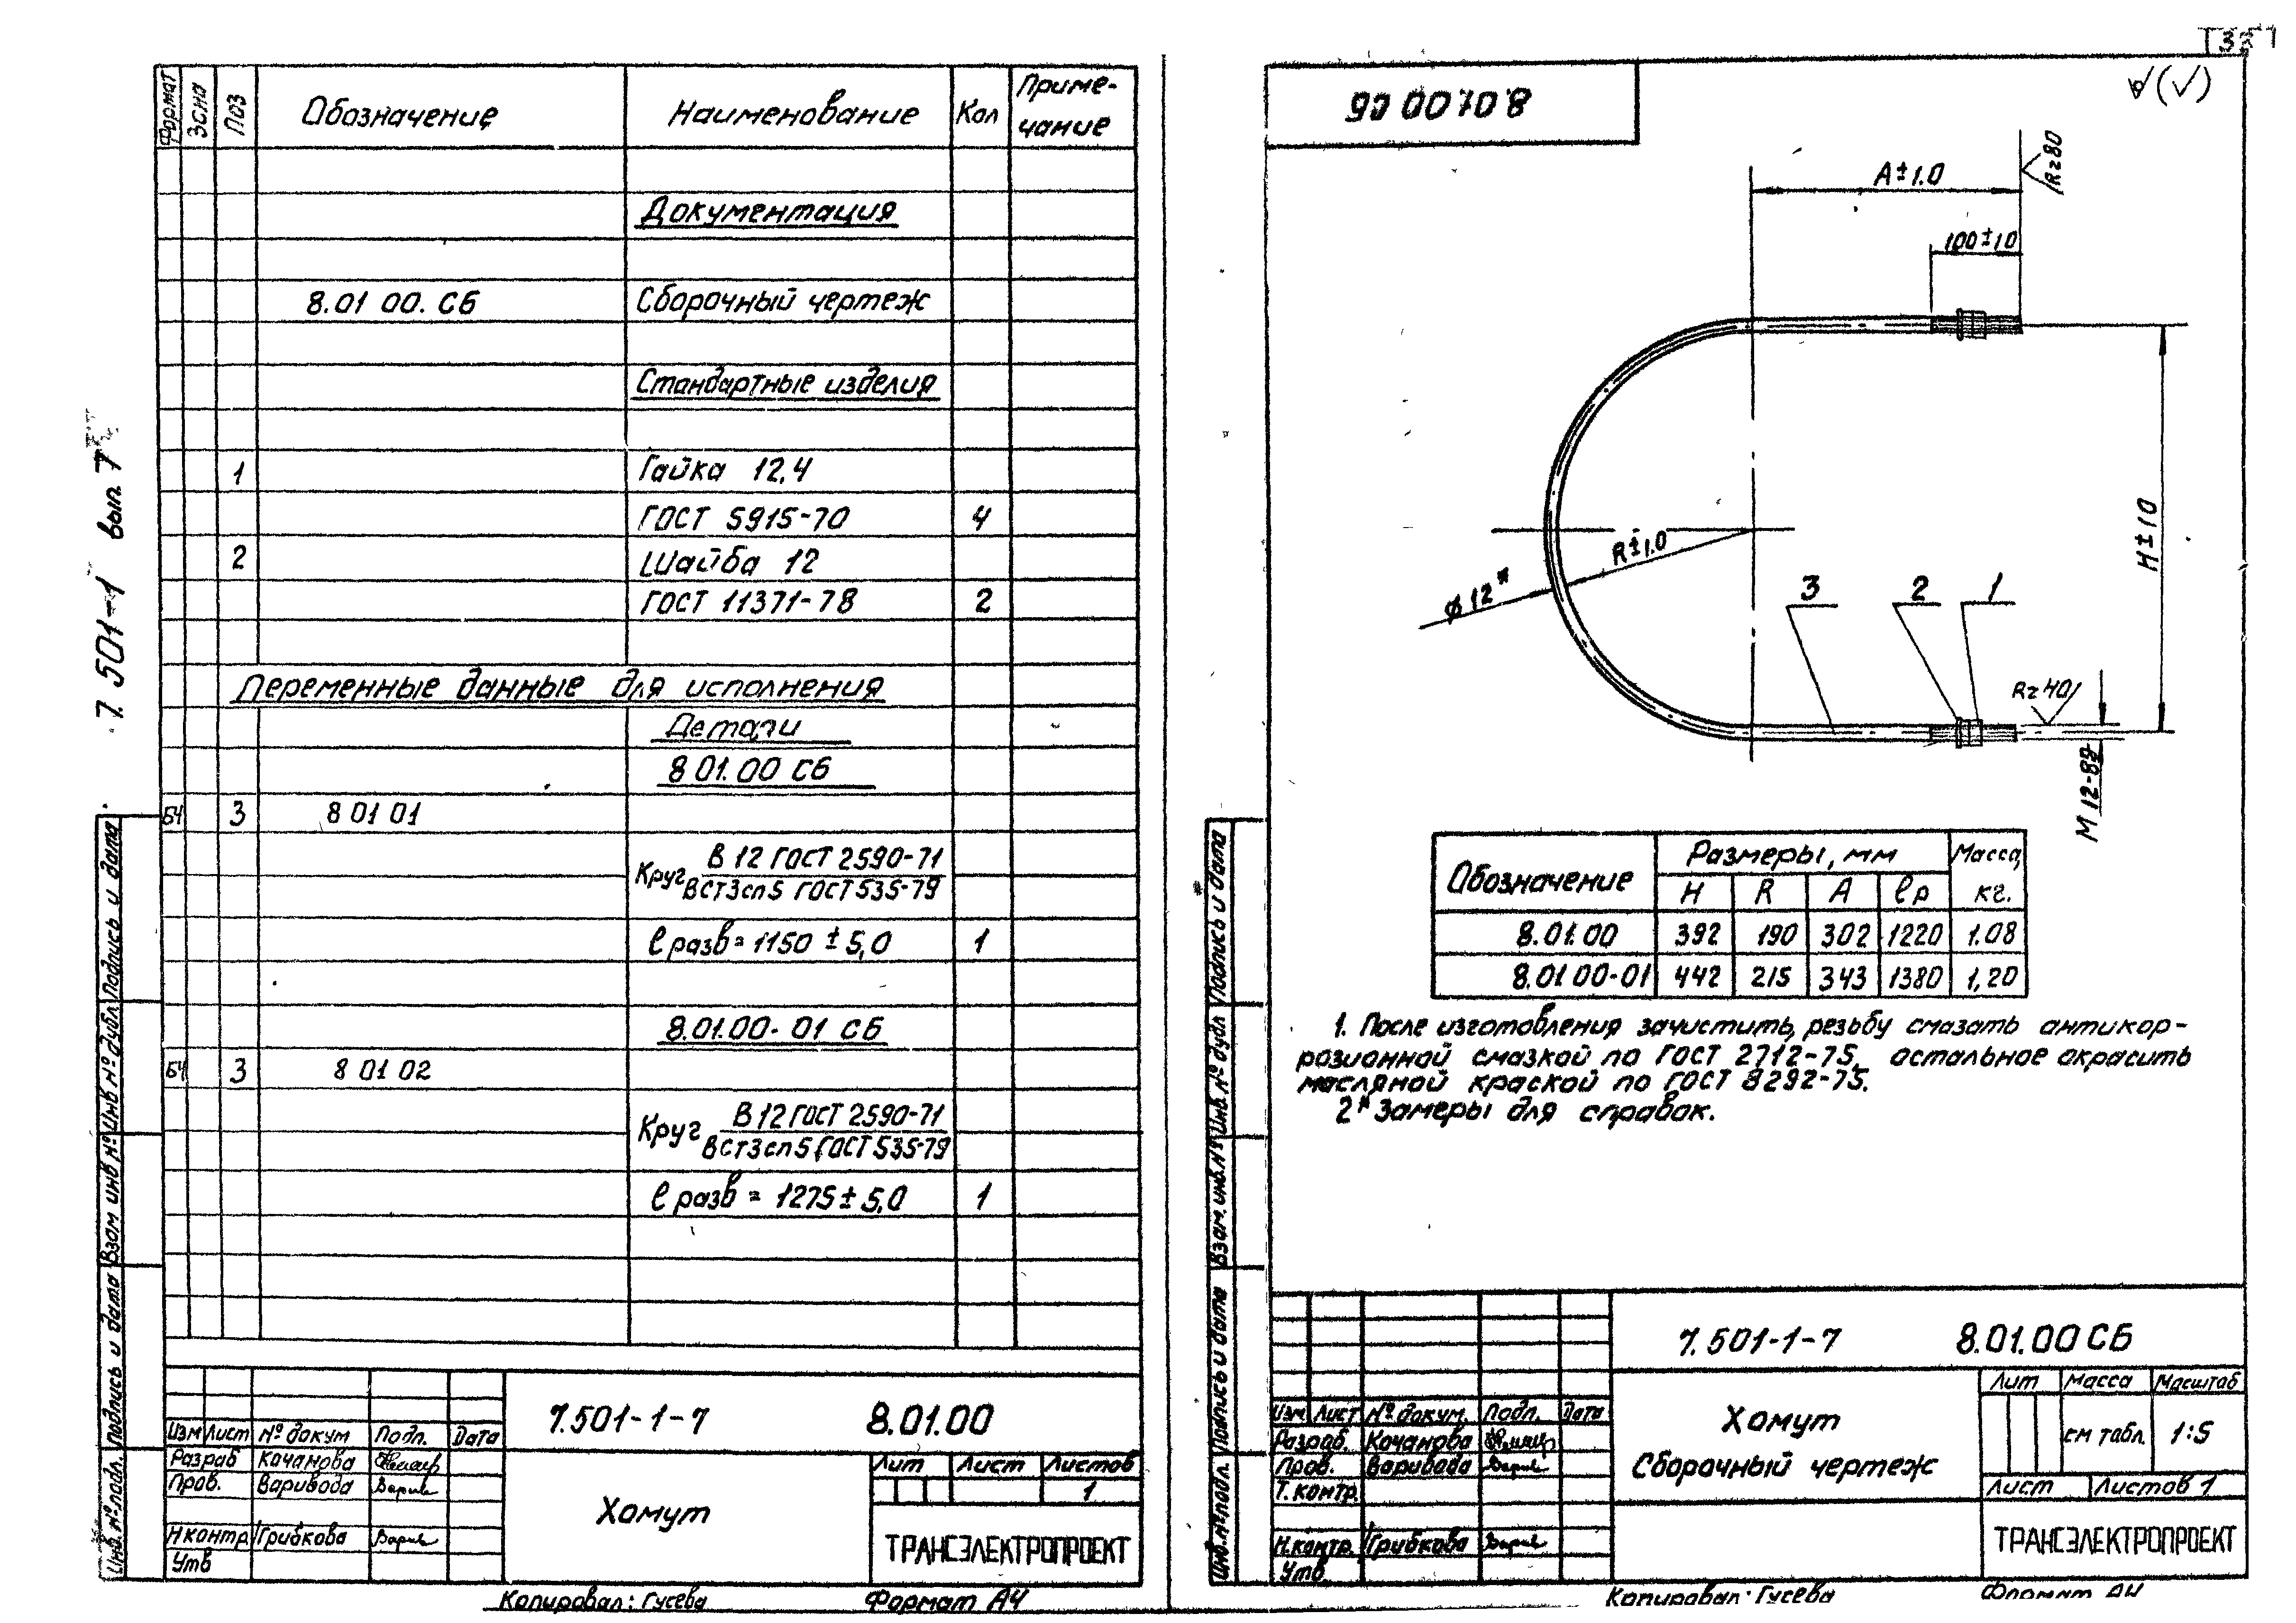 33
Формат
Зона
Поз
Обозначение
Наименование
Кол
Приме-
чание
Документация
8.01 00. СБ
Сборочный чертеж
Стандартные изделия
1
Гайка 12,4
ГОСТ 5915-70
4
2
Шайба 12
ГОСТ 11371-78
2
Переменные данные для исполнения
Детали
8 01.00 СБ
БЧ
3
8 01 01
Круг В 12 ГОСТ 2590-71
ВСт3сп5 ГОСТ 535-79
ℓ разв = 1150 ± 5,0
1
8.01.00-01 СБ
БЧ
3
8 01 02
Круг В 12 ГОСТ 2590-71
ВСт3сп5 ГОСТ 535-79
ℓ разв = 1275 ± 5,0
1
7.501-1 вып. 7
Подпись и дата
Инв № дубл
Взам инв №
Подпись и дата
Инв. № подл.
7.501-1-7
8.01.00
Изм
Лист
№ докум
Подп.
Дата
Разраб
Качанова
Пров.
Варивода
Н контр
Грибкова
Утв
Хомут
Лит
Лист
Листов
1
ТРАНСЭЛЕКТРОПРОЕКТ
Копировал: Гусева
Формат А4
8.01.00 СБ
√(√)
А±1.0
Rz80
100±10
R±1.0
Ø12*
H±10
3
2
1
Rz40
М12-8g
Обозначение
Размеры, мм
Масса,
кг.
H
R
A
ℓр
8.01.00
392
190
302
1220
1.08
8.01 00-01
442
215
343
1380
1,20
1. После изготовления зачистить, резьбу смазать антикор-
розионной смазкой по ГОСТ 2712-75, остальное окрасить
масляной краской по ГОСТ 8292-75.
2* Замеры для справок.
Подпись и дата
Инв. № дубл
Взам. инв. №
Подпись и дата
Инв. № подл.
7.501-1-7
8.01.00 СБ
Изм
Лист
№ докум.
Подп.
Дата
Разраб.
Качанова
Пров.
Варивода
Т. контр.
Н. контр.
Грибкова
Утв
Хомут
Сборочный чертеж
Лит
Масса
Масштаб
см табл.
1:5
Лист
Листов 1
ТРАНСЭЛЕКТРОПРОЕКТ
Копировал: Гусева
Формат А4